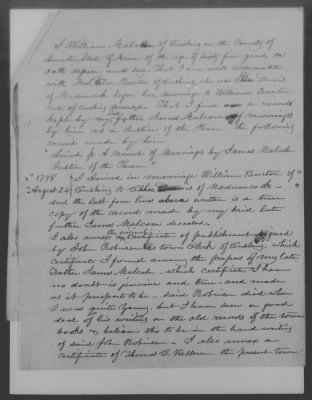 I William Malcom of Cushing in the County of
Lincoln State of Maine of the age of sixty five years on
oath depose and say that I am well acquainted
with Mrs Burton of Cushing who was Davis
of before her marriage to William Burton
late of Cushing deceased. That I find in a record
kept by my late father James Malcom of marriages
by him as a Justice of the Peace the following
record made by him
Lincoln ss A record of Marriages by James Malcom
Justice of the Peace"
"1788 I Joined in marriage William Burton of
August 24 Cushing to Davis of
and the last five lines above written is a true
copy of the record made by my said late
father James Malcom deceased.
I also annex the original certificate of publishment signed
by John Robinson town Clerk of Cushing, which
certificate I found among the papers of my late
father James Malcom - which certificate I have
no doubt is genuine and true - and made
as it purports to be - said Robinson died when
I was quite young, but I have seen a good
deal of his writing on the old records of the town
books & believe this to be in the hand writing
of said John Robinson - I also annex a
certificate of Thomas the present town